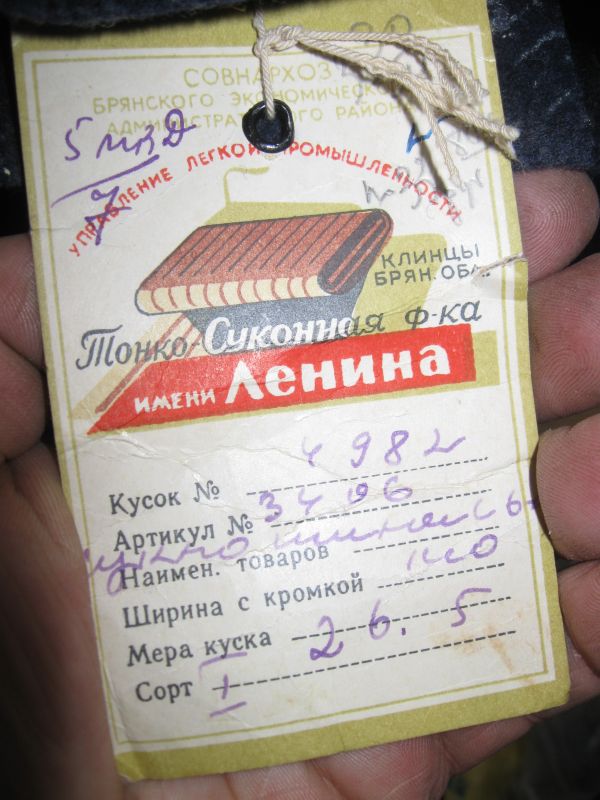 СОВНАРХОЗ
БРЯНСКОГО ЭКОНОМИЧЕСКОГО
АДМИНИСТРАТИВНОГО РАЙОНА
5 мвд
7
УПРАВЛЕНИЕ ЛЕГКОЙ ПРОМЫШЛЕННОСТИ
КЛИНЦЫ
БРЯН. ОБЛ.
Тонко-Суконная ф-ка
ИМЕНИ Ленина
Кусок № 4982
Артикул № 3496
Наимен. товаров
Ширина с кромкой
Мера куска 26.5
Сорт I